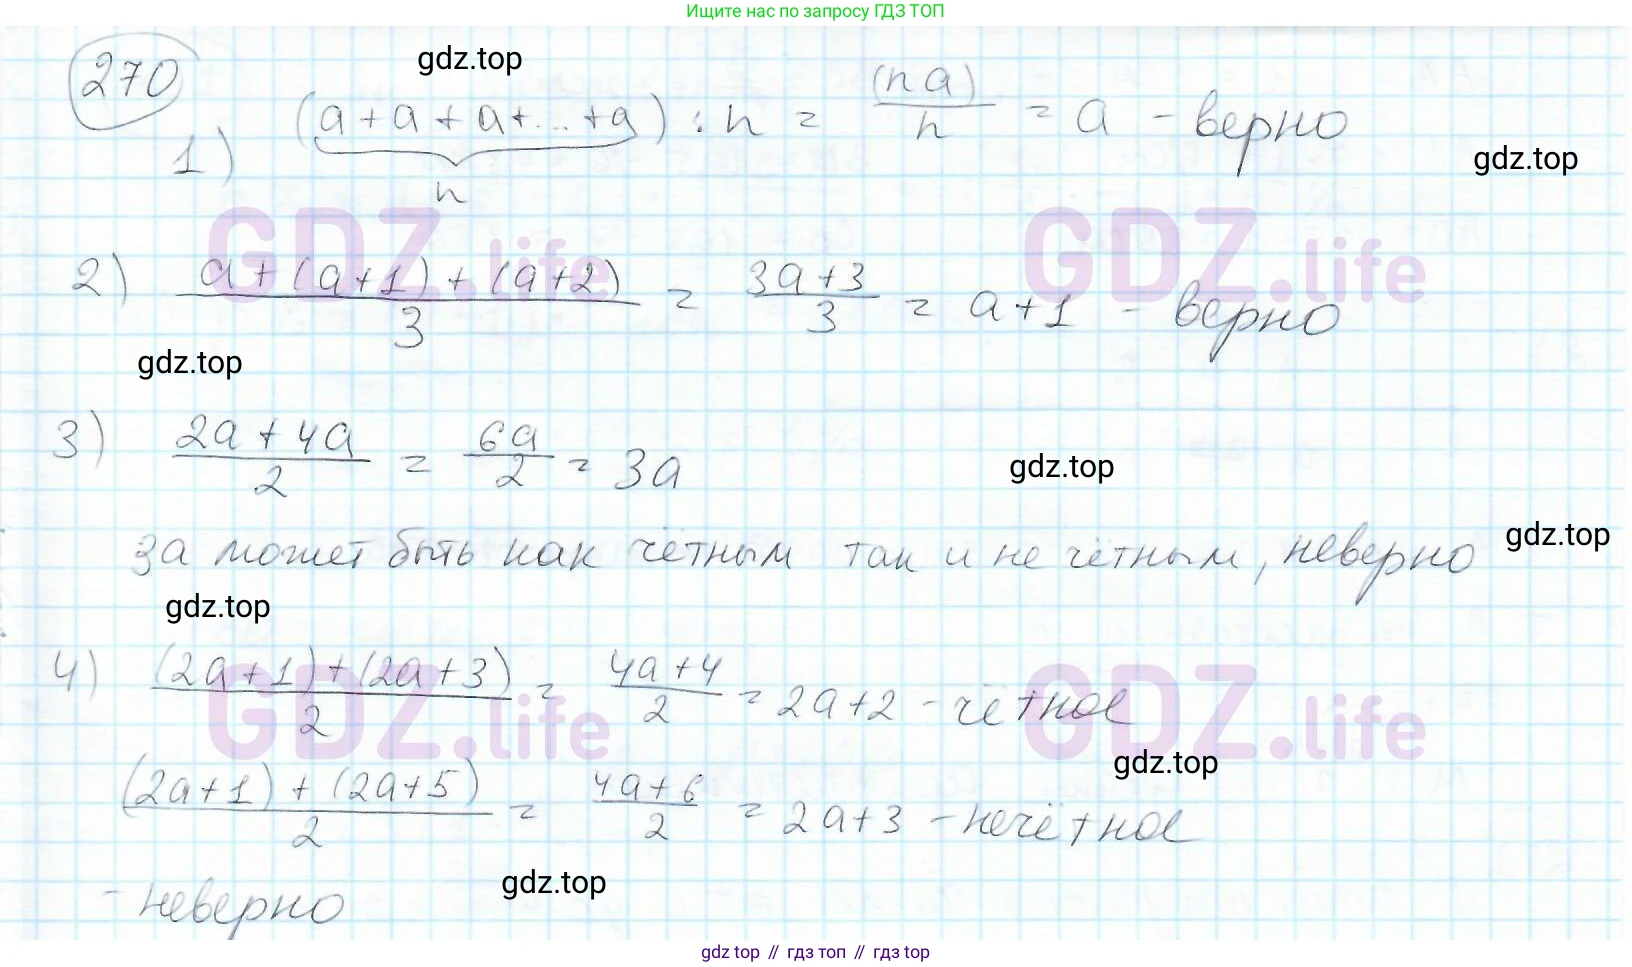 Ищите нас по запросу ГДЗ ТОП
270
gdz.top
1) (a+a+a+...+a) : n = (na)/n = a - верно
n
gdz.top
GDZ.life GDZ.life
2) (a+(a+1)+(a+2))/3 = (3a+3)/3 = a+1 - верно
gdz.top
3) (2a+4a)/2 = 6a/2 = 3a
gdz.top
gdz.top
3a может быть как чётным так и не чётным, неверно
gdz.top
4) ((2a+1)+(2a+3))/2 = (4a+4)/2 = 2a+2 - чётное
GDZ.life GDZ.life
gdz.top
((2a+1)+(2a+5))/2 = (4a+6)/2 = 2a+3 - нечётное
gdz.top
- неверно
gdz top // гдз топ // гдз top